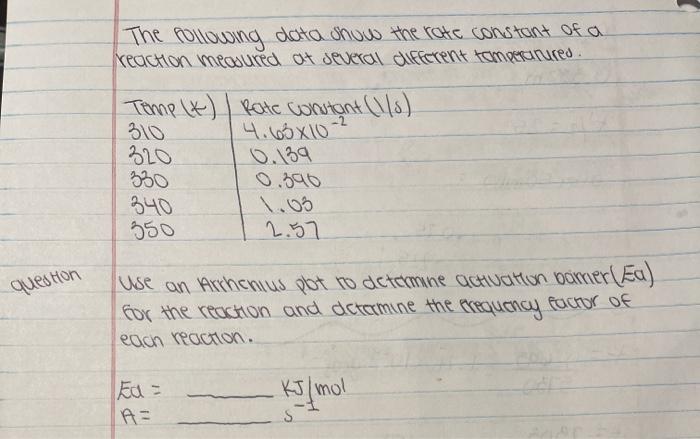 The following data show the rate constant of a
reaction measured at several different temperatures.
Temp (K) Rate constant (1/s)
310 4.63x10⁻²
320 0.139
330 0.390
340 1.03
350 2.57
question Use an Arrhenius plot to determine activation barrier (Ea)
for the reaction and determine the frequency factor of
each reaction.
Ea = ______ KJ/mol
A = ______ s⁻¹